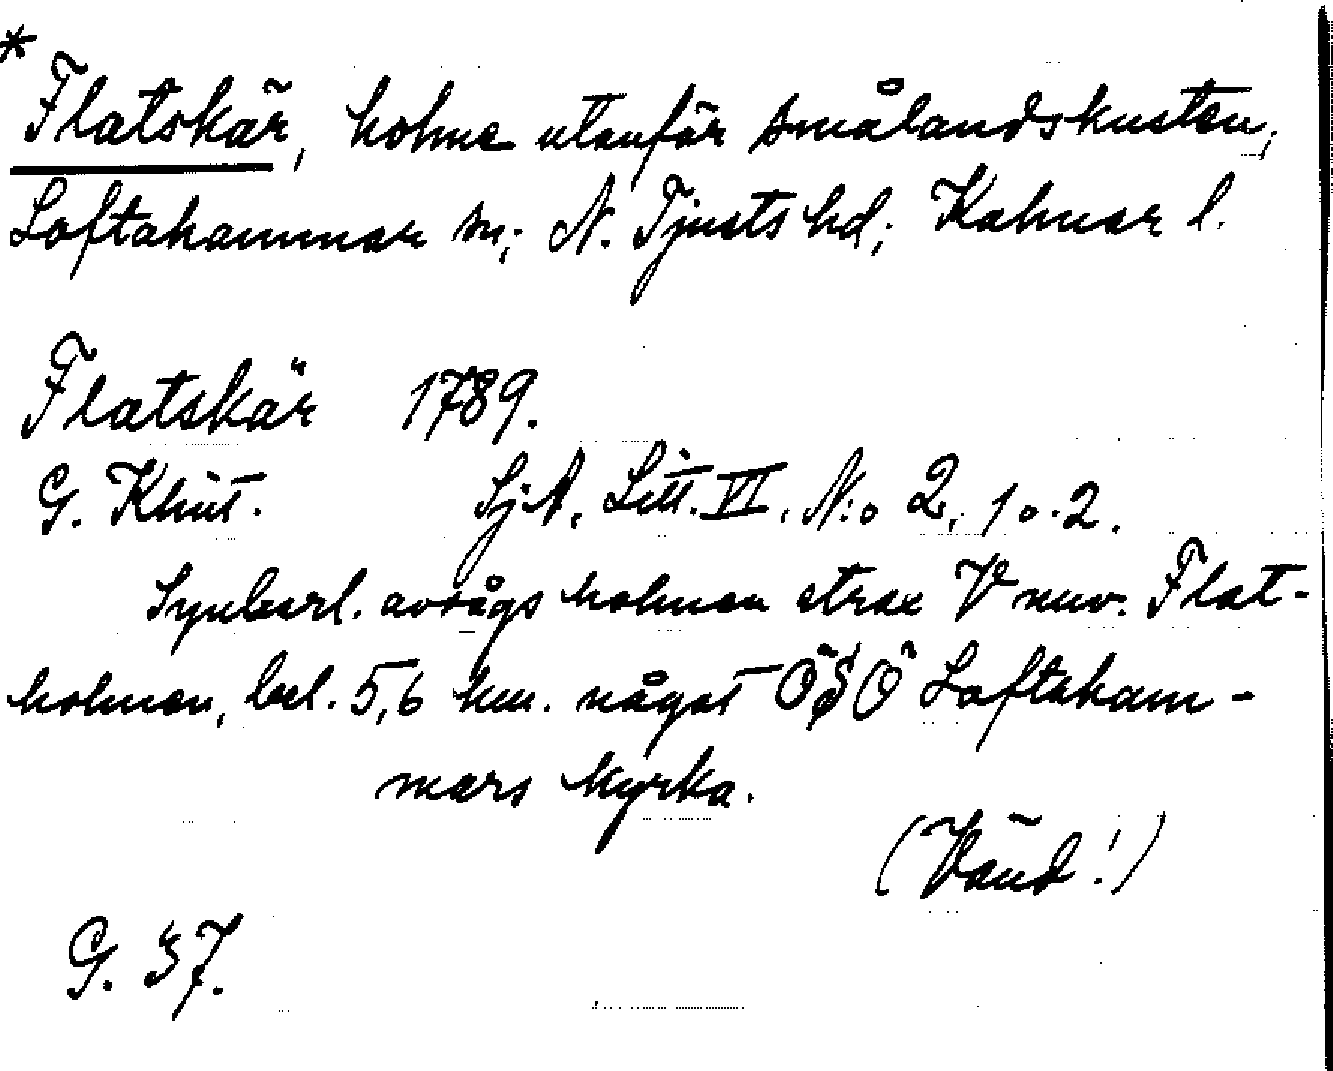 *
Flatskär, holme utanför Smålandskusten,
Loftahammar sn; N. Tjusts hd; Kalmar l.
Flatskär 1789.
G. Klint. SjA, Litt. VI, N:o 2, 1 o. 2.
Synbarl. avsågs holmen strax V nuv. Flat-
holmen, bel. 5,6 km. något ÖSÖ Loftaham-
mars kyrka.
(Vänd!)
G. 37.